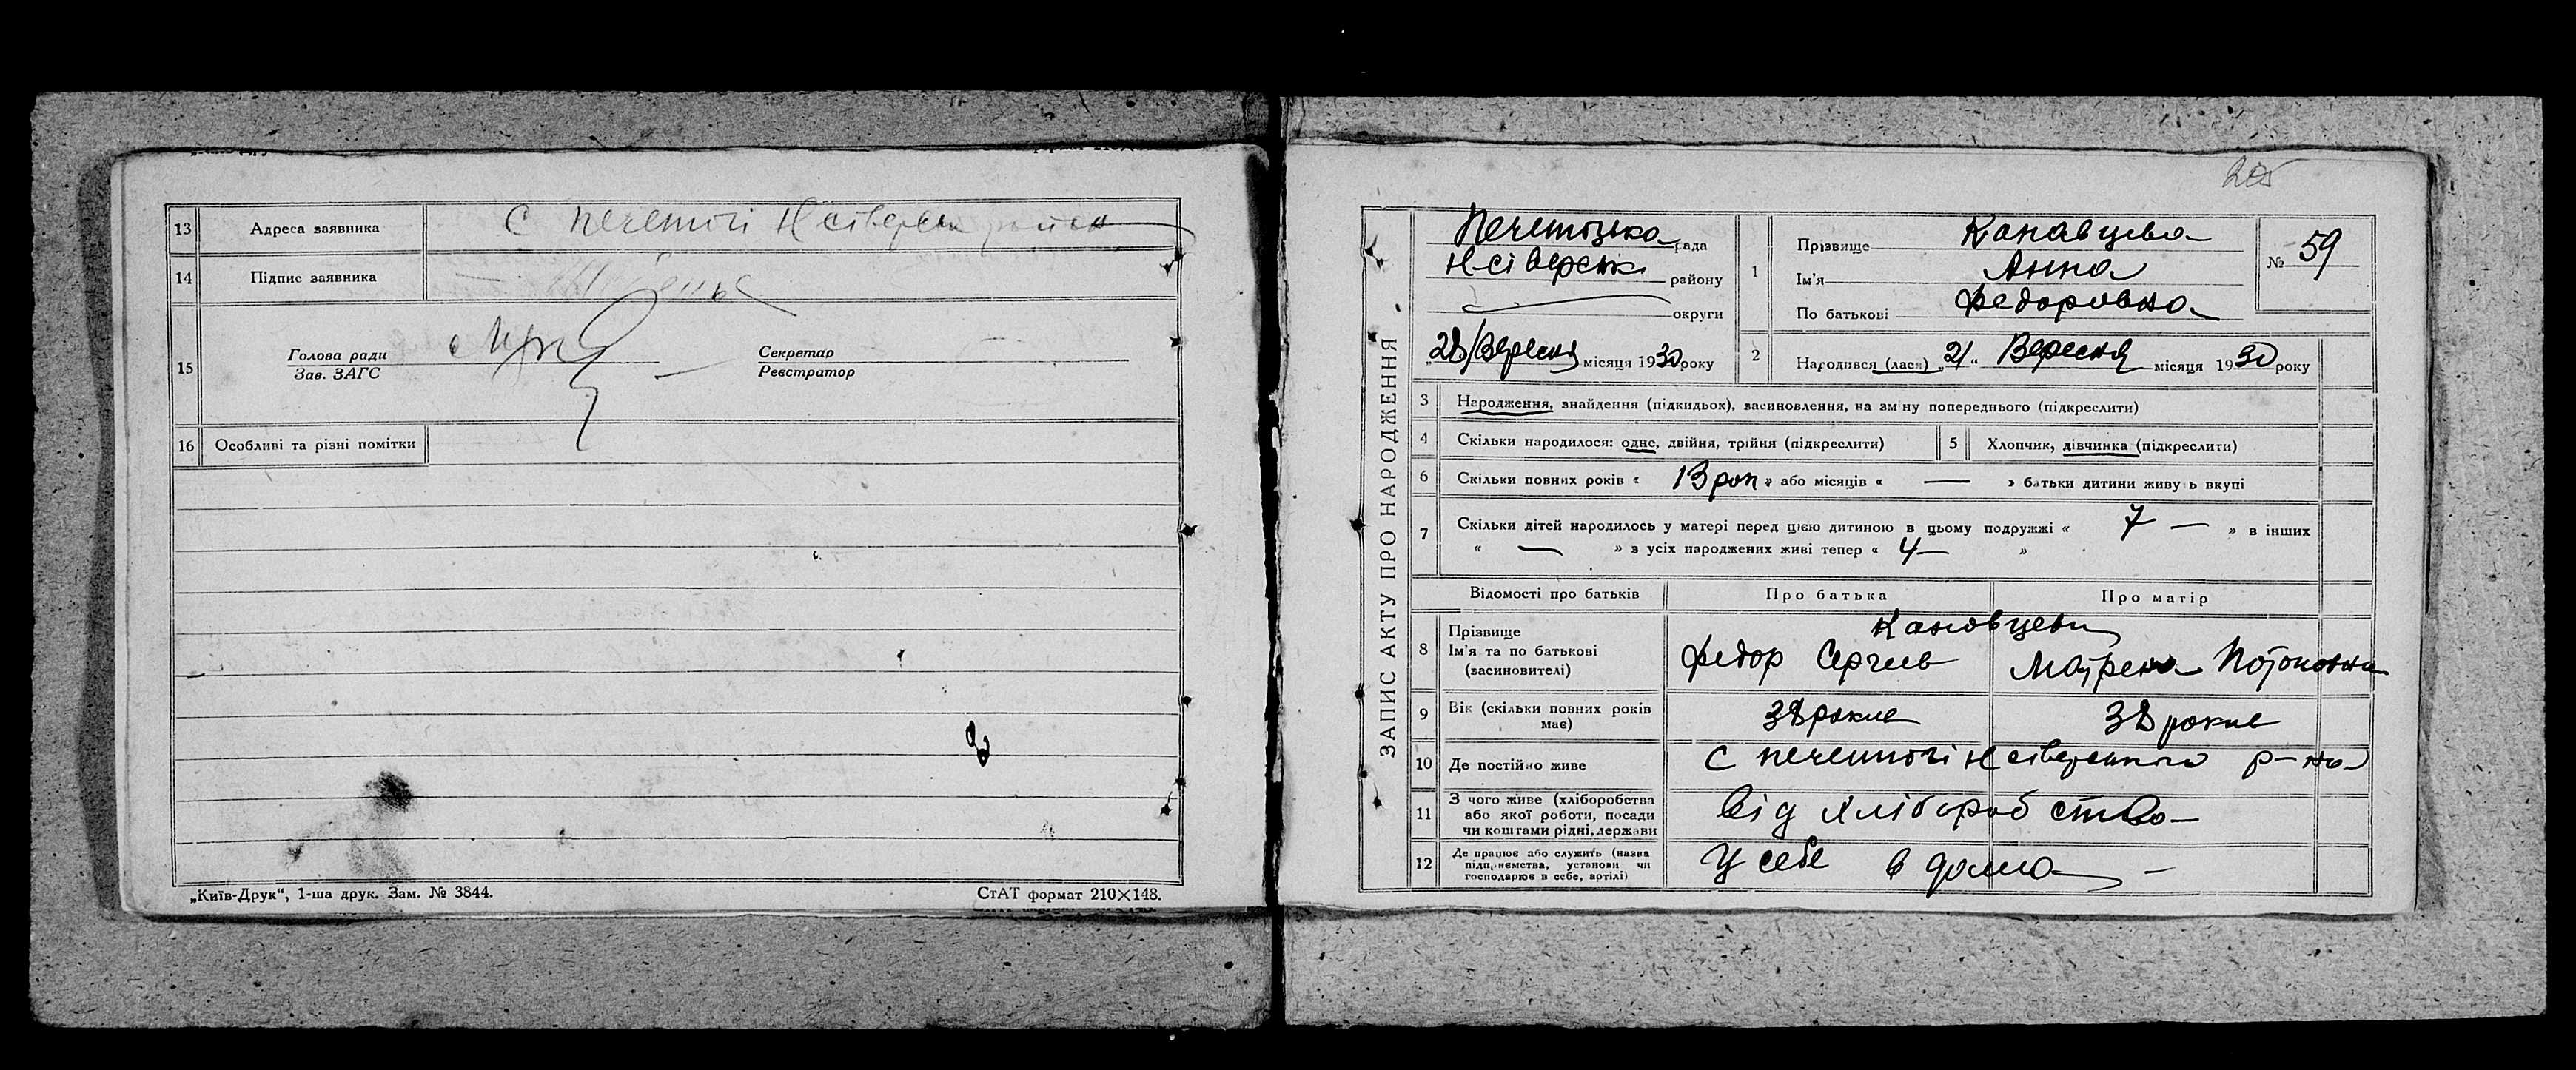 13 Адреса заявника С Печенюгі Н сіверськ район
14 Підпис заявника
15 Голова ради
Зав. ЗАГС
Секретар
Реєстратор
16 Особливі та різні помітки
„Київ-Друк“, 1-ша друк. Зам. № 3844.
СтАТ формат 210×148.
ЗАПИС АКТУ ПРО НАРОДЖЕННЯ
рада
Н-сіверськ району
округи
„28/Вересня місяця 1930 року
1 Прізвище Канавцева
Ім'я Анна
По батькові Федоровна
№ 59
2 Народився (лася) „21“ Вересня місяця 1930 року
3 Народження, знайдення (підкидьох), засиновлення, на зміну попереднього (підкреслити)
4 Скільки народилося: одне, двійня, трійня (підкреслити)
5 Хлопчик, дівчинка (підкреслити)
6 Скільки повних років « 13 рок » або місяців « — » батьки дитини живуть вкупі
7 Скільки дітей народилось у матері перед цією дитиною в цьому подружжі « 7 — » в інших
« — » з усіх народжених живі тепер « 4 — »
Відомості про батьків Про батька Про матір
8 Прізвище
Ім'я та по батькові
(засиновителі)
Канавцеви
Федор Сергеев
9 Вік (скільки повних років
має)
38 роков
38 роков
10 Де постійно живе С Печенюгі Н сіверського р-на
11 З чого живе (хліборобства
або якої роботи, посади
чи коштами рідні, держави
Від хліборобства
12 Де працює або служить (назва
підприємства, установи чи
господарює в себе, артілі)
У себе в дома —